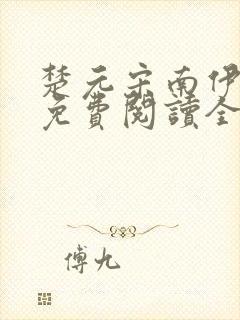 楚元宗南伊
免費閱讀全
傅九